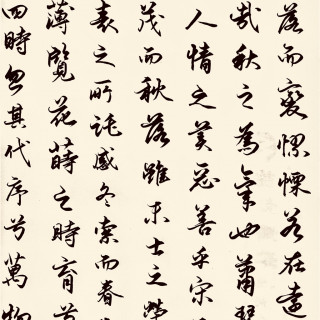 四時忽其代序兮萬物
薄覽花蒔之時育兮
衰之所託感冬索而春
茂而秋落雖末士之榮
人情之美惡善乎宋
哉秋之為氣也蕭瑟
落而變憀慄若在遠